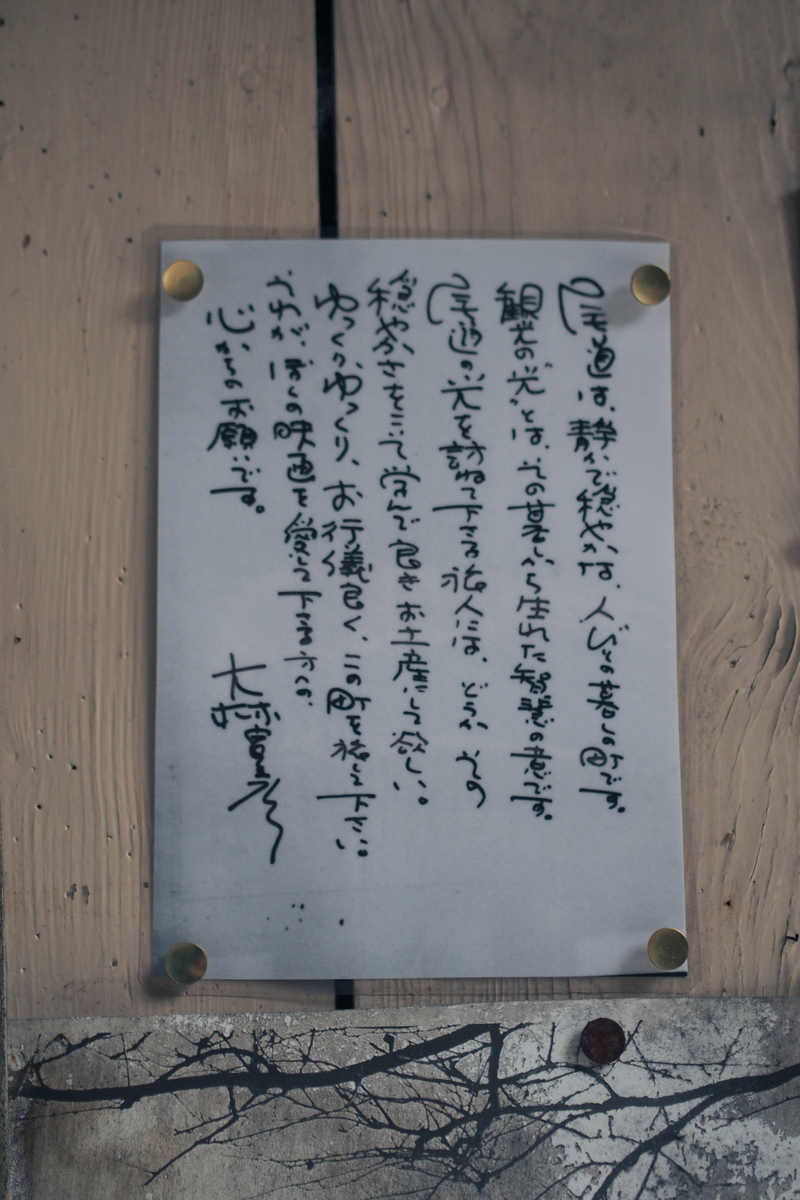 尾道は、静かで穏やかな、人びとの暮しの町です。
観光の“光”とは、その暮しから生れた智慧の意です。
尾道の光を訪ねて下さる旅人には、どうか その
穏やかさをこそ学んで良きお土産にして欲しい。
ゆっくり、ゆっくり、お行儀良く、この町を旅して下さい。
それが、ぼくの映画を愛して下さる方への、
心からのお願いです。
大林宣彦